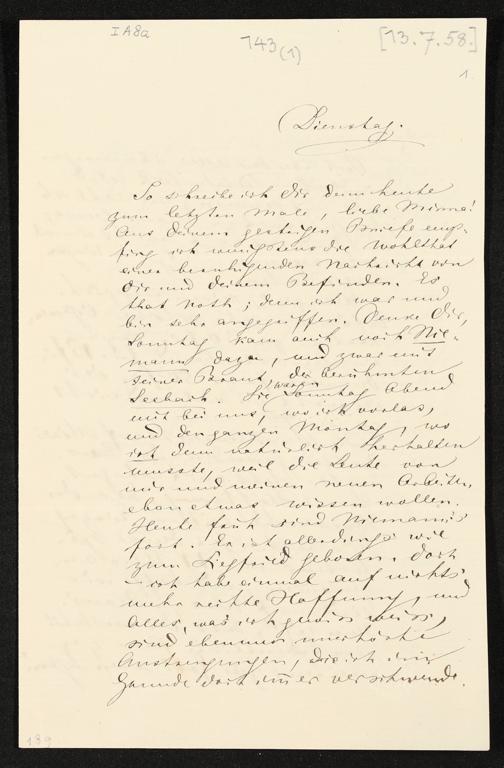 I A 8a
143 (1)
[13.7.58.]
1.
Dienstag.
So schreibe ich Dir denn heute
zum letzten Male, liebe Minna!
Aus Deinem gestrigen Briefe emp-
fing ich wenigstens die Wohlthat
einer beruhigenden Nachricht von
Dir und Deinem Befinden. Es
that noth; denn ich war und
bin sehr angegriffen. Denke Dir,
Sonntag kam auch noch Nie-
mann dazu, und zwar mit
seiner Braut, der berühmten
Seebach. Sie waren Sonntag Abend
mit bei uns, wo ich vorlas,
und den ganzen Montag, wo
ich denn natürlich herhalten
musste, weil die Leute von
mir und meinen neuen Arbeiten
eben etwas wissen wollen.
Heute früh sind Niemann's
fort. Er ist allerdings wie
zum Siegfried geboren. Doch
– ich habe einmal auf nichts
mehr rechte Hoffnung, und
Alles, was ich gewiss weiss,
sind ebennur unerhörte
Anstrengungen, die ich im
Grunde doch immer verschwende.
189